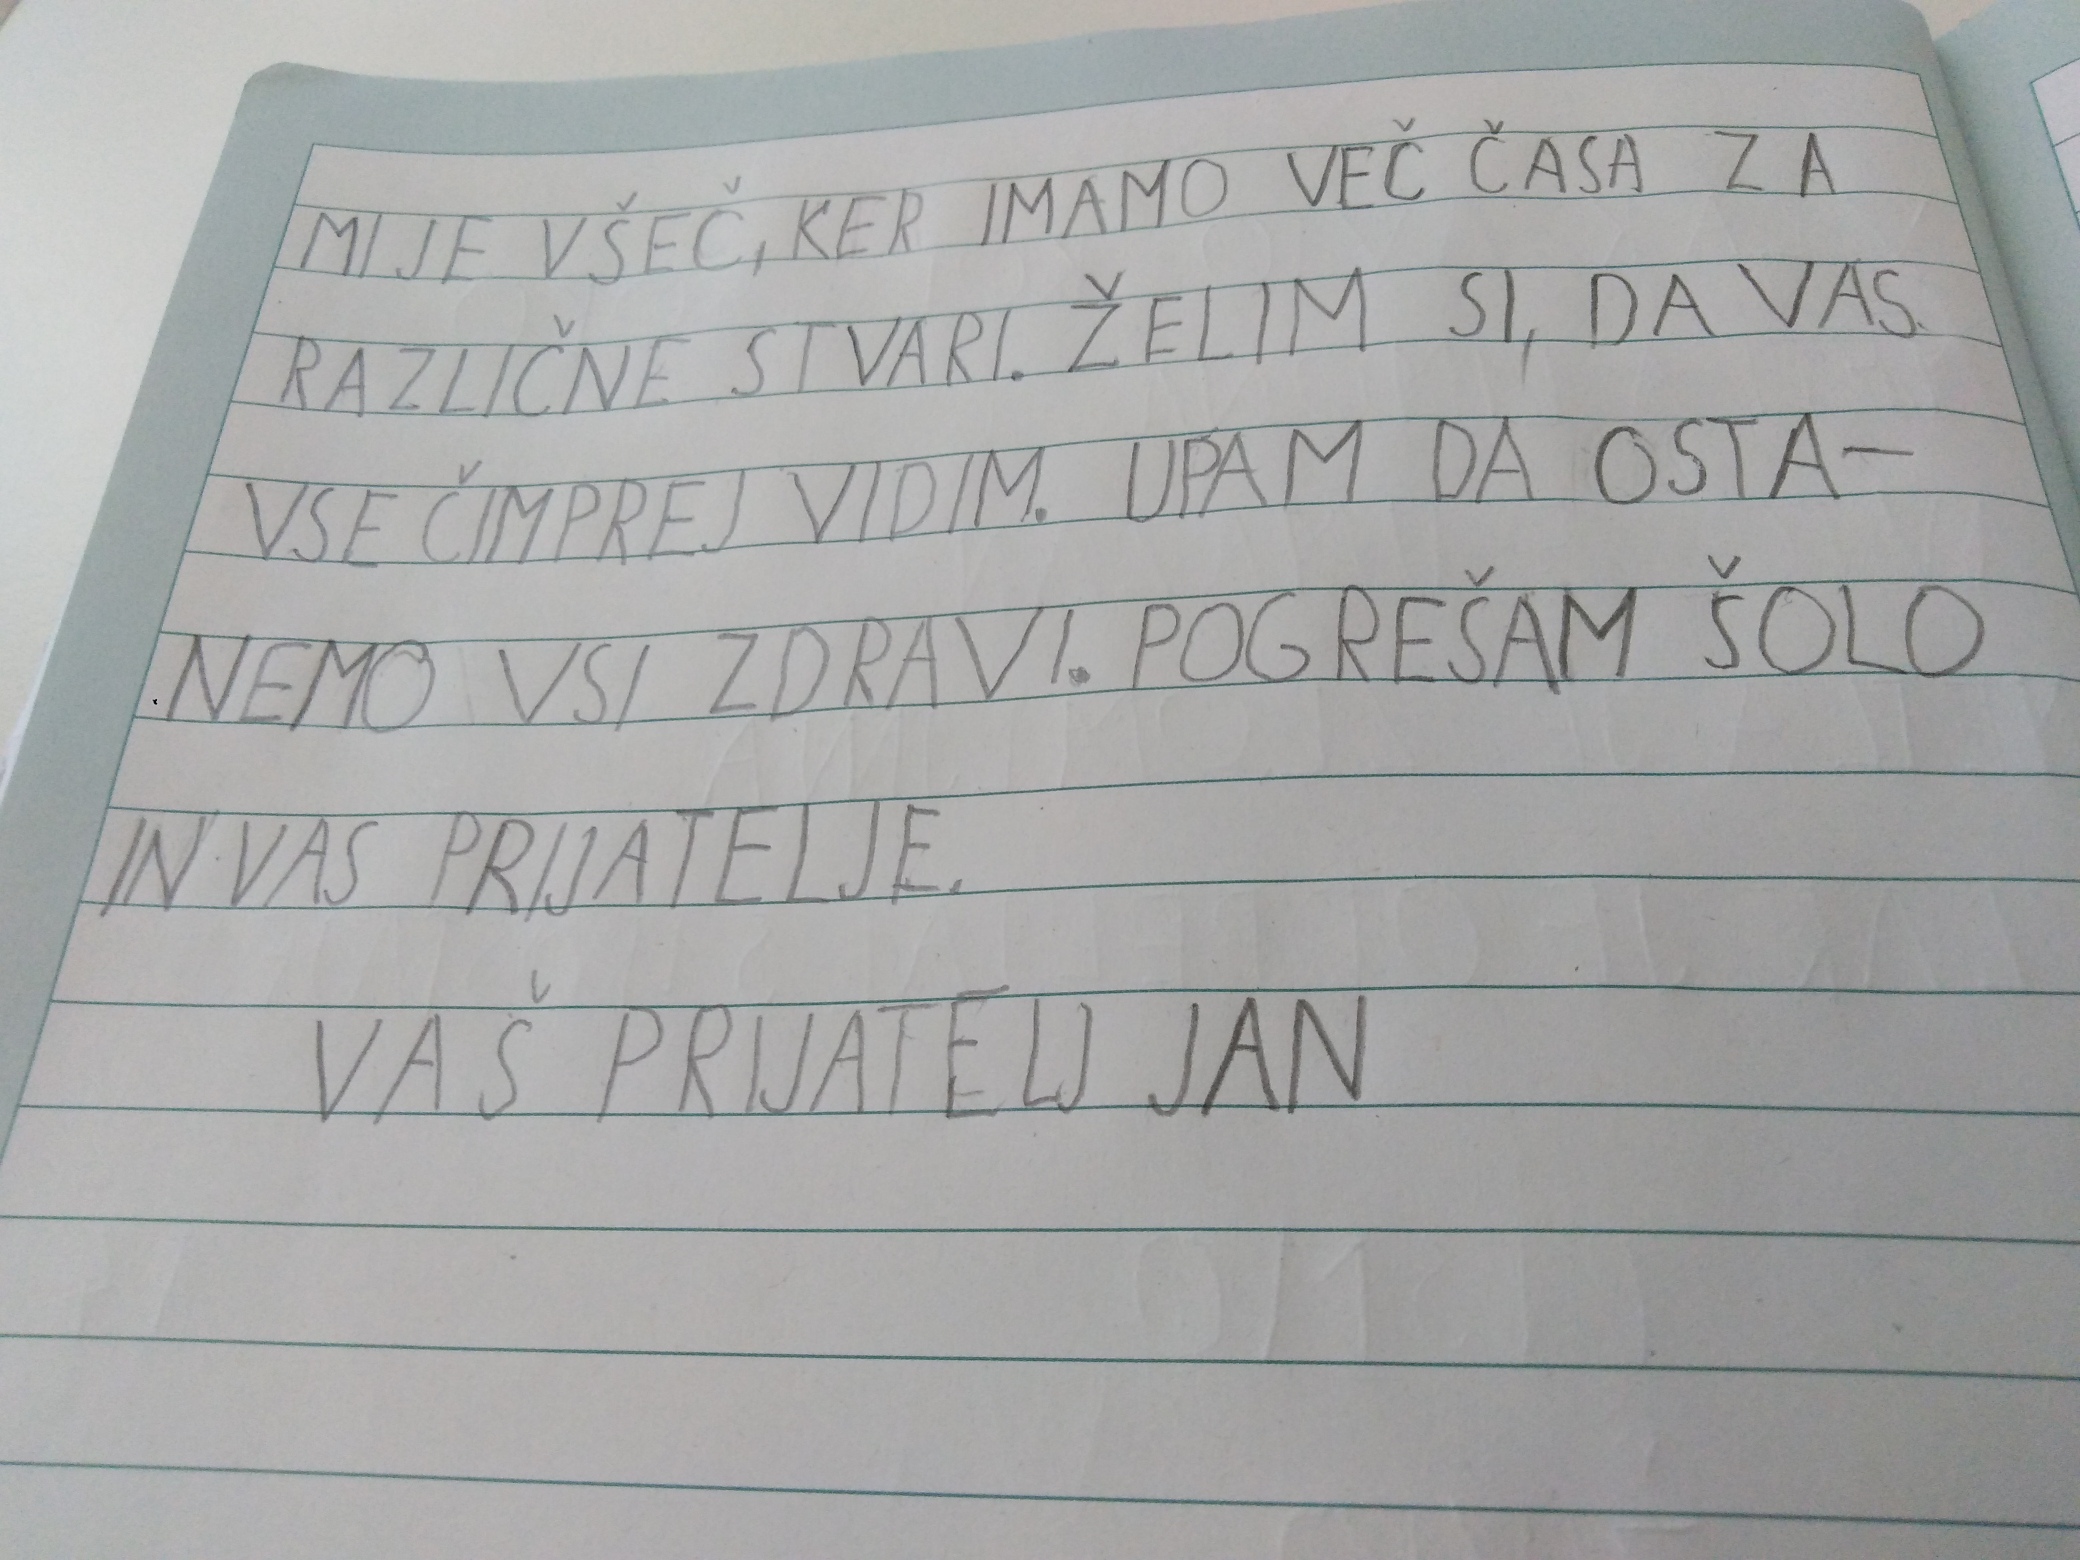 MI JE VŠEČ, KER IMAMO VEČ ČASA ZA
RAZLIČNE STVARI. ŽELIM SI, DA VAS
VSE ČIMPREJ VIDIM. UPAM DA OSTA-
NEMO VSI ZDRAVI. POGREŠAM ŠOLO
IN VAS PRIJATELJE.
VAŠ PRIJATELJ JAN